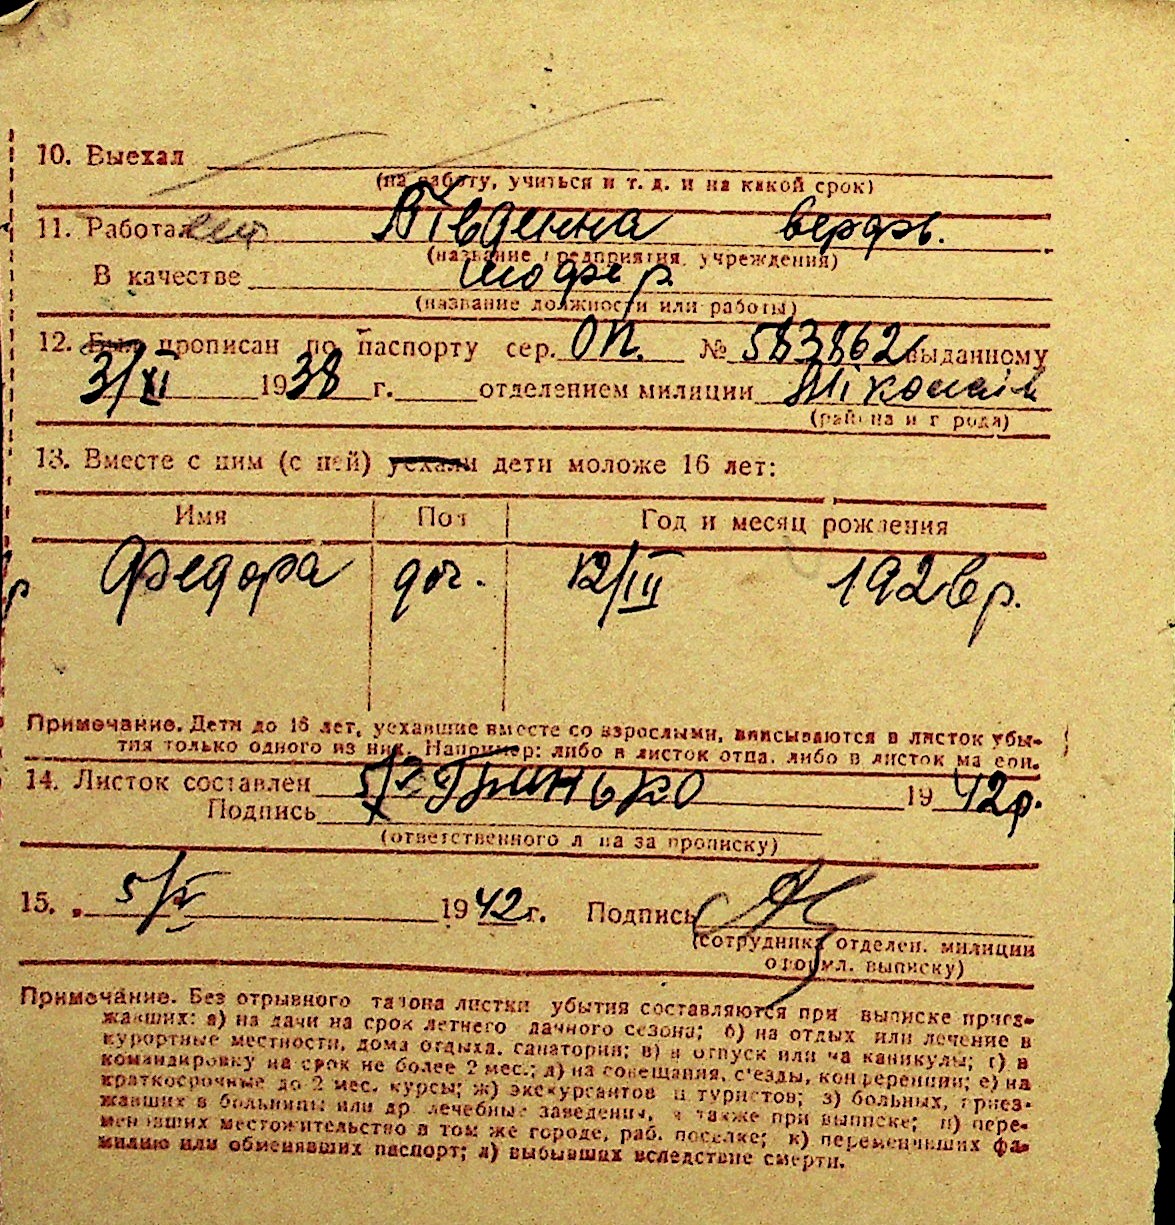 10. Выехал
(на работу, учиться и т. д. и на какой срок)
11. Работает Південна верфь.
(название предприятия, учреждения)
В качестве шофер
(название должности или работы)
12. Был прописан по паспорту сер. ОП. № 583862 выданному
3/XI 1938 г. отделением милиции Міколаїв
(района и города)
13. Вместе с ним (с ней) уехали дети моложе 16 лет:
Имя Пол Год и месяц рождения
Федора доч. 12/III 1928 р.
Примечание. Дети до 16 лет, уехавшие вместе со взрослыми, вписываются в листок убы-
тия только одного из них. Например: либо в листок отца, либо в листок матери.
14. Листок составлен 5/X Гринько 1942р.
Подпись
(ответственного лица за прописку)
15. „ 5/X 1942 г. Подпись
(сотрудника отделен. милиции
оформл. выписку)
Примечание. Без отрывного талона листки убытия составляются при выписке приез-
жавших: а) на дачи на срок летнего дачного сезона; б) на отдых или лечение в
курортные местности, дома отдыха, санатории; в) в отпуск или на каникулы; г) в
командировку на срок не более 2 мес.; д) на совещания, съезды, конференции; е) на
краткосрочные до 2 мес. курсы; ж) экскурсантов и туристов; з) больных, приез-
жавших в больницы или др лечебные заведения, а также при выписке; и) пере-
менивших местожительство в том же городе, раб. поселке; к) переменивших фа-
милию или обменявших паспорт; л) выбывших вследствие смерти.